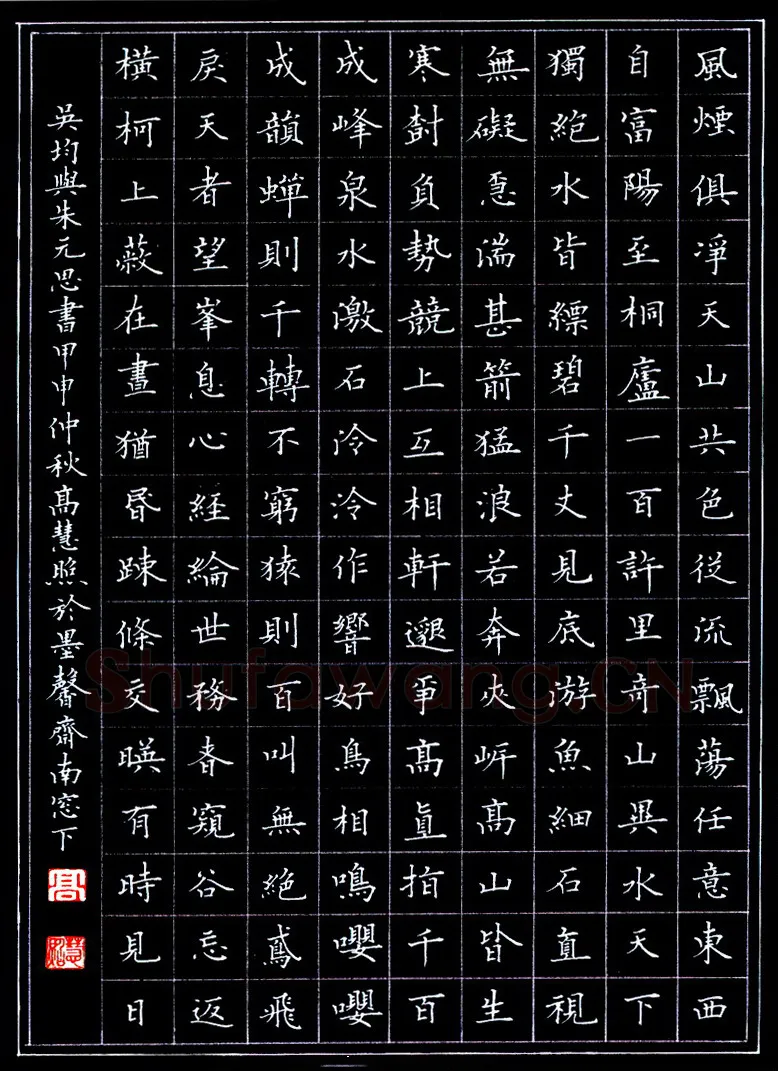 風煙俱凈天山共色從流飄蕩任意東西
自富陽至桐廬一百許里奇山異水天下
獨絕水皆縹碧千丈見底游魚細石直視
無礙急湍甚箭猛浪若奔夾㟁高山皆生
寒樹負勢競上互相軒邈爭高直指千百
成峰泉水激石泠泠作響好鳥相鳴嚶嚶
成韻蟬則千轉不窮猿則百叫無絕鳶飛
戾天者望峯息心經綸世務者窺谷忘返
橫柯上蔽在晝猶昏疎條交暎有時見日
吳均與朱元思書甲申仲秋高慧照於墨馨齋南窓下
高
慧照
Shufawang.CN